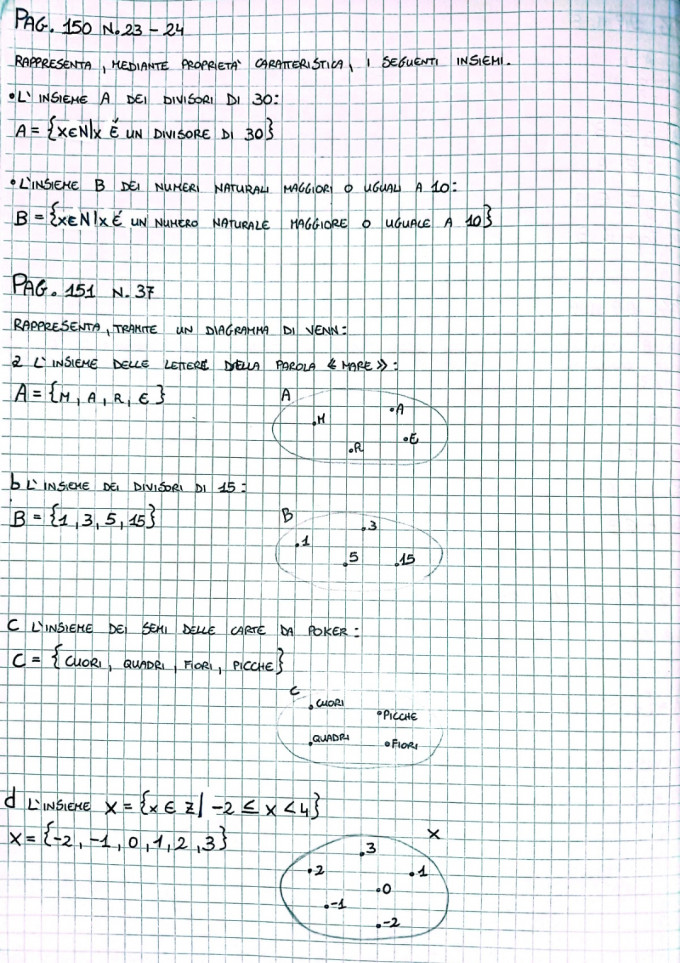 PAG. 150 N.23 - 24
RAPPRESENTA, MEDIANTE PROPRIETA' CARATTERISTICA, I SEGUENTI INSIEMI.
•L'INSIEME A DEI DIVISORI DI 30:
A = {x∈N|x É UN DIVISORE DI 30}
•L'INSIEME B DEI NUMERI NATURALI MAGGIORI O UGUALI A 10:
B = {x∈N|x É UN NUMERO NATURALE MAGGIORE O UGUALE A 10}
PAG. 151 N. 37
RAPPRESENTA, TRAMITE UN DIAGRAMMA DI VENN:
a L'INSIEME DELLE LETTERE DELLA PAROLA «MARE»:
A = {M, A, R, E}
A
.M
•A
.R
•E
b L'INSIEME DEI DIVISORI DI 15:
B = {1, 3, 5, 15}
B
.3
.1
.5
.15
C L'INSIEME DEI SEMI DELLE CARTE DA POKER:
C = {CUORI, QUADRI, FIORI, PICCHE}
C
.CUORI
•PICCHE
.QUADRI
•FIORI
d L'INSIEME X = {x ∈ Z| -2 ≤ x < 4}
X = {-2, -1, 0, 1, 2, 3}
X
.3
•2
.1
•0
•-1
•-2